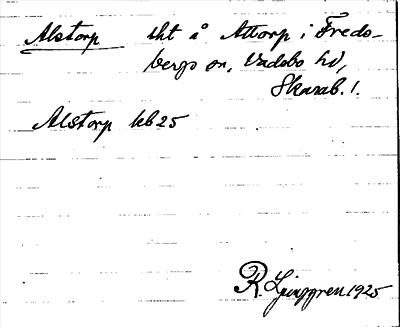 Alstorp sht å Attorp i Freds-
bergs sn, Vadsbo hd,
Skarab. l.
Alstorp kb 25
R. Ljunggren 1925